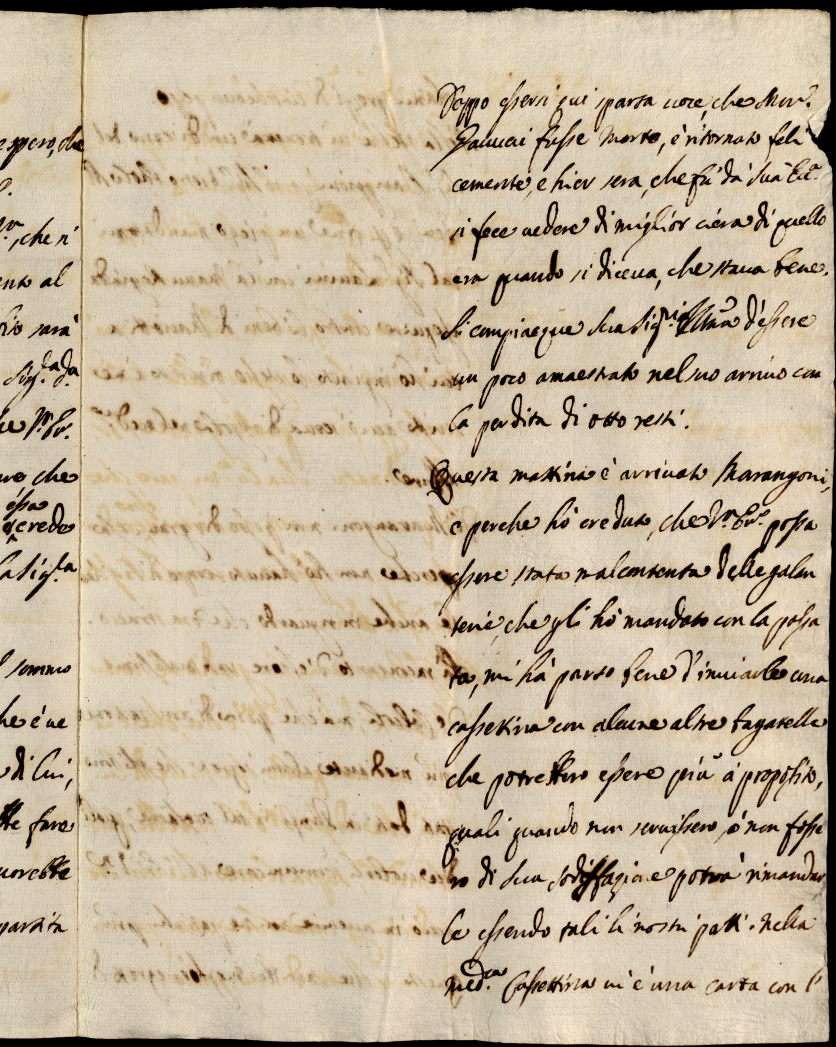 espero, che
che n'
ento al
sarà
Sig.ra
che
essa
crede
la Sig.ra
sommo
he è ue
di lui,
tte fare
uorebbe
partita
Doppo essersi qui sparsa uoce, che Mon.r
fusse morto, è ritornato feli
cemente, e hier sera, che fù dà Sua Ecc.a
si fece uedere di miglior ciera di quello
era quando si diceua, che staua bene.
Si compiacque Sua Sig.ria Ill.ma d'essere
un poco amaestrato nel suo arriuo con
la perdita di otto resti.
Questa mattina è arriuato Marangoni,
e perche hò creduto, che V.ra Ecc.a possa
essere stata malcontenta delle galan
terie, che gli hò mandato con la passa
ta, mi hà parso bene d'inuiarle una
cassettina con alcune altre bagatelle
che potrebbero essere più à proposito,
quali quando non seruissero, ò non fosse
ro di sua sodisfazione potrà rimandar
le essendo tali li nostri patti. Nella
med.ma Cassettina ui è una carta con l'